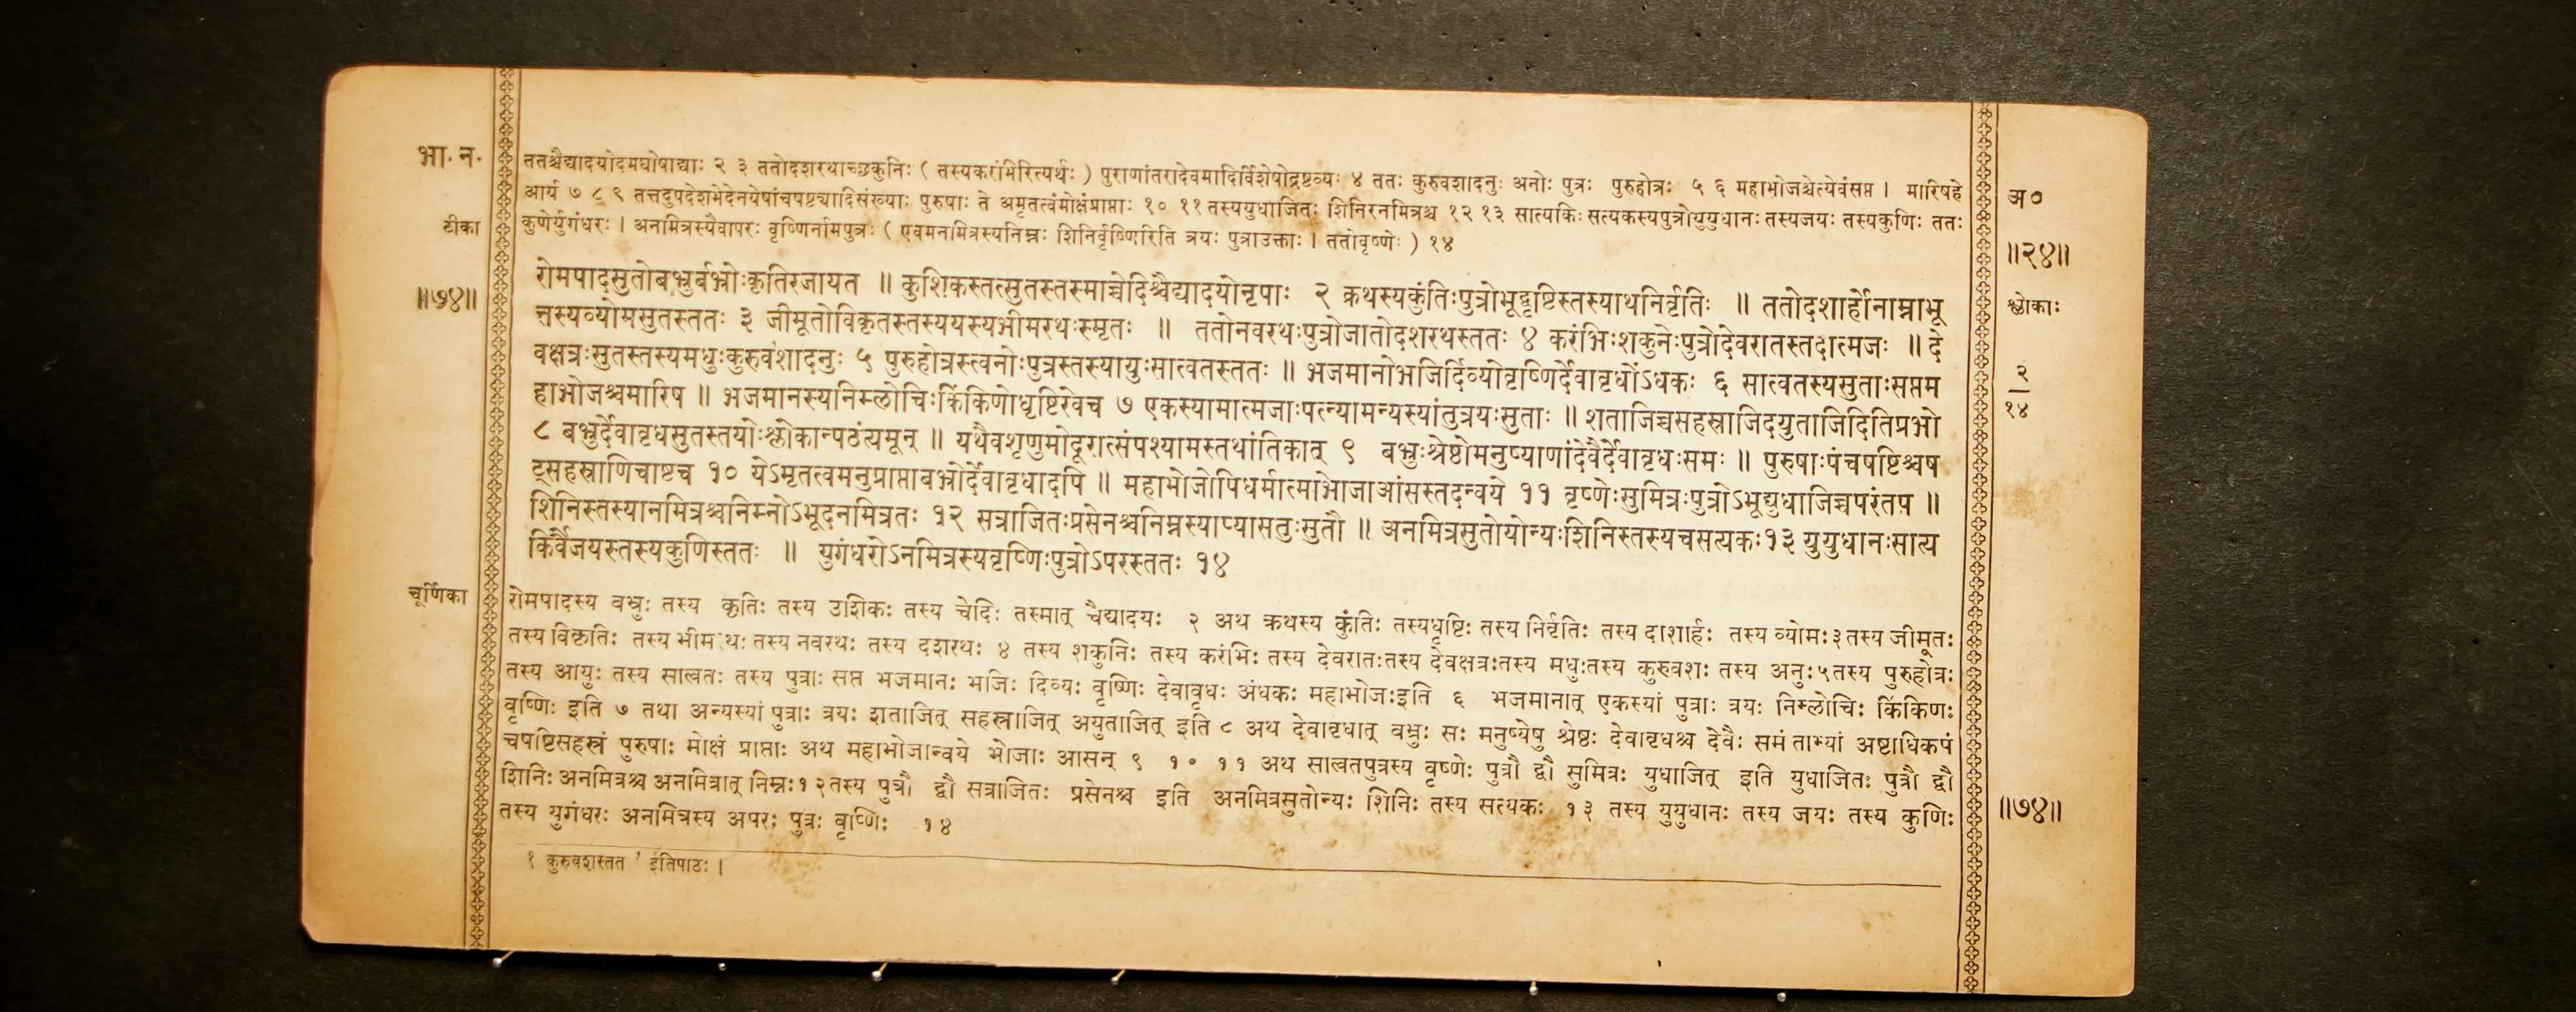 भा. न.
ततश्चैद्यादयोदमघोषाद्याः २ ३ ततोदशरथाच्छकुनिः ( तस्यकरांभिरित्यर्थः ) पुराणांतरादेवमादिर्विशेषोद्रष्टव्यः ४ ततः कुरुवशादनुः अनोः पुत्रः पुरुहोत्रः ५ ६ महाभोजश्चेत्येवंसप्त । मारिषहे
आर्य ७ ८ ९ तत्तदुपदेशभेदेनयेषांचपष्ट्यादिसंख्याः पुरुषाः ते अमृतत्वंमोक्षंप्राप्ताः १० ११ तस्ययुधाजितः शिनिरनमित्रश्च १२ १३ सात्यकिः सत्यकस्यपुत्रोयुयुधानः तस्यजयः तस्यकुणिः ततः
कुणेर्युगंधरः । अनमित्रस्यैवापरः वृष्णिर्नामपुत्रः ( एवमनमित्रस्यनिम्नः शिनिर्वृष्णिरिति त्रयः पुत्राउक्ताः । ततोवृष्णेः ) १४
टीका
अ०
॥२४॥
॥७४॥
श्लोकाः
२
१४
रोमपादसुतोबभ्रुर्बभ्रोःकृतिरजायत ॥ कुशिकस्तत्सुतस्तस्माच्चेदिश्चैद्यादयोनृपाः २ क्रथस्यकुंतिःपुत्रोभूद्धृष्टिस्तस्याथनिर्वृतिः ॥ ततोदशार्होनाम्नाभू
त्तस्यव्योमसुतस्ततः ३ जीमूतोविकृतस्तस्ययस्यभीमरथःस्मृतः ॥ ततोनवरथःपुत्रोजातोदशरथस्ततः ४ करंभिःशकुनेःपुत्रोदेवरातस्तदात्मजः ॥ दे
वक्षत्रःसुतस्तस्यमधुःकुरुवशादनुः ५ पुरुहोत्रस्त्वनोःपुत्रस्तस्यायुःसात्वतस्ततः ॥ भजमानोभजिर्दिव्योवृष्णिर्देवावृधोंऽधकः ६ सात्वतस्यसुताःसप्तम
हाभोजश्चमारिष ॥ भजमानस्यनिम्लोचिःकिंकिणोधृष्टिरेवच ७ एकस्यामात्मजाःपत्न्यामन्यस्यांतुत्रयःसुताः ॥ शताजिच्चसहस्राजिदयुताजिदितिप्रभो
८ बभ्रुर्देवावृधसुतस्तयोःश्लोकान्पठंत्यमून् ॥ यथैवशृणुमोदूरात्संपश्यामस्तथांतिकात् ९ बभ्रुःश्रेष्ठोमनुष्याणांदेवैर्देवावृधःसमः ॥ पुरुषाःपंचषष्टिश्चष
ट्सहस्राणिचाष्टच १० येऽमृतत्वमनुप्राप्ताबभ्रोर्देवावृधादपि ॥ महाभोजोपिधर्मात्माभोजाआंसस्तदन्वये ११ वृष्णेःसुमित्रःपुत्रोऽभूद्युधाजिच्चपरंतप ॥
शिनिस्तस्यानमित्रश्चनिम्नोऽभूदनमित्रतः १२ सत्राजितःप्रसेनश्चनिम्नस्याप्यासतुःसुतौ ॥ अनमित्रसुतोयोन्यःशिनिस्तस्यचसत्यकः१३ युयुधानःसात्य
किर्वैजयस्तस्यकुणिस्ततः ॥ युगंधरोऽनमित्रस्यवृष्णिःपुत्रोऽपरस्ततः १४
चूर्णिका
रोमपादस्य बभ्रुः तस्य कृतिः तस्य उशिकः तस्य चेदिः तस्मात् चैद्यादयः २ अथ क्रथस्य कुंतिः तस्यधृष्टिः तस्य निर्वृतिः तस्य दाशार्हः तस्य व्योमः३तस्य जीमूतः
तस्य विकृतिः तस्य भीम थः तस्य नवरथः तस्य दशरथः ४ तस्य शकुनिः तस्य करंभिः तस्य देवरातःतस्य देवक्षत्रःतस्य मधुःतस्य कुरुवशः तस्य अनुः५तस्य पुरुहोत्रः
तस्य आयुः तस्य सात्वतः तस्य पुत्राः सप्त भजमानः भजिः दिव्यः वृष्णिः देवावृधः अंधकः महाभोजःइति ६ भजमानात् एकस्यां पुत्राः त्रयः निम्लोचिः किंकिणः
वृष्णिः इति ७ तथा अन्यस्यां पुत्राः त्रयः शताजित् सहस्राजित् अयुताजित् इति ८ अथ देवावृधात् बभ्रुः सः मनुष्येषु श्रेष्ठः देवावृधश्च देवैः समं ताभ्यां अष्टाधिकपं
चषष्टिसहस्त्रं पुरुषाः मोक्षं प्राप्ताः अथ महाभोजान्वये भोजाः आसन् ९ १० ११ अथ सात्वतपुत्रस्य वृष्णेः पुत्रौ द्वौ सुमित्रः युधाजित् इति युधाजितः पुत्रौ द्वौ
शिनिः अनमित्रश्च अनमित्रात् निम्नः१२तस्य पुत्रौ द्वौ सत्राजितः प्रसेनश्च इति अनमित्रसुतोन्यः शिनिः तस्य सत्यकः १३ तस्य युयुधानः तस्य जयः तस्य कुणिः
तस्य युगंधरः अनमित्रस्य अपरः पुत्रः वृष्णिः १४
॥७४॥
१ कुरुवशस्तत ' इतिपाठः ।